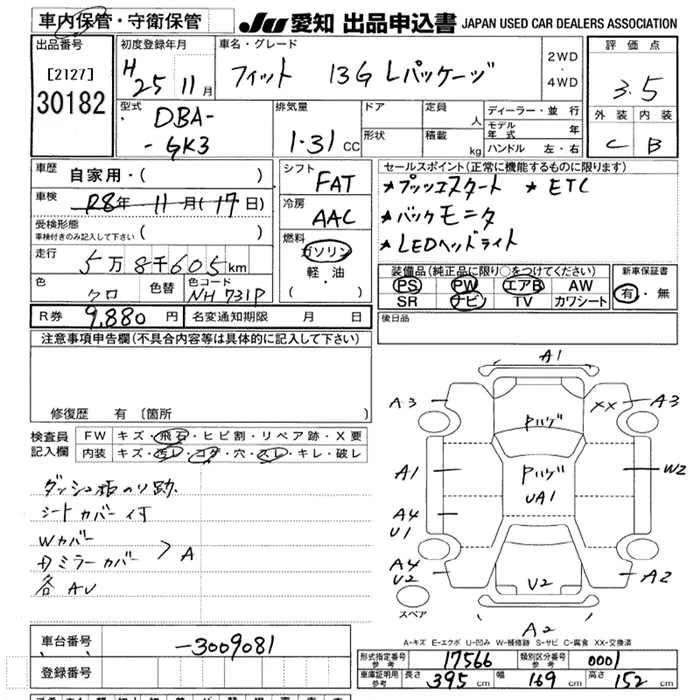 車内保管・守衛保管 JU 愛知 出品申込書 JAPAN USED CAR DEALERS ASSOCIATION
出品番号 [2127] 30182
初度登録年月 H25 11月
車名・グレード フィット 13G Lパッケージ
2WD・4WD
評価点 3.5
外装 C 内装 B
型式 DBA-
-GK3
排気量 1.31 CC
ドア 形状
定員 人
積載 kg
ディーラー・並行
モデル年式 年
ハンドル 左・右
車歴 自家用・( )
車検 R8年 11月(17日)
受検形態
車検付きのみ記入して下さい ( )
走行 5万8千605km
色 クロ 色替 色コード NH731P
シフト FAT
冷房 AAC
燃料 ガソリン
軽・油
・( )
セールスポイント(正常に機能するものに限ります)
★プッシュスタート ★ETC
★バックモニタ
★LEDヘッドライト
装備品(純正品に限り○をつけてください)
PS PW エアB AW
SR ナビ TV カワシート
新車保証書
有・無
R券 9,880円 名変通知期限 月 日
後日品
注意事項申告欄(不具合内容等は具体的に記入して下さい)
修復歴 有〔箇所 〕
検査員記入欄
FW キズ・飛石・ヒビ割・リペア跡・X要
内装 キズ・汚レ・コゲ・穴・スレ・キレ・破レ
シートカバー付
Wカバー
ドミラーカバー > A
各AU
A1
A3 XX A3
Pハゲ
A1 Pハゲ W2
UA1
A4
U1
A4
U2 U2 A2
スペア
A2
A-キズ E-エクボ U-凹み W-補修跡 S-サビ C-腐食 XX-交換済
車台番号 -3009081
登録番号
形式指定番号 参考 17566 類別区分番号 参考 0001
車庫証明用 参考 長さ 395cm 幅 169cm 高さ 152cm